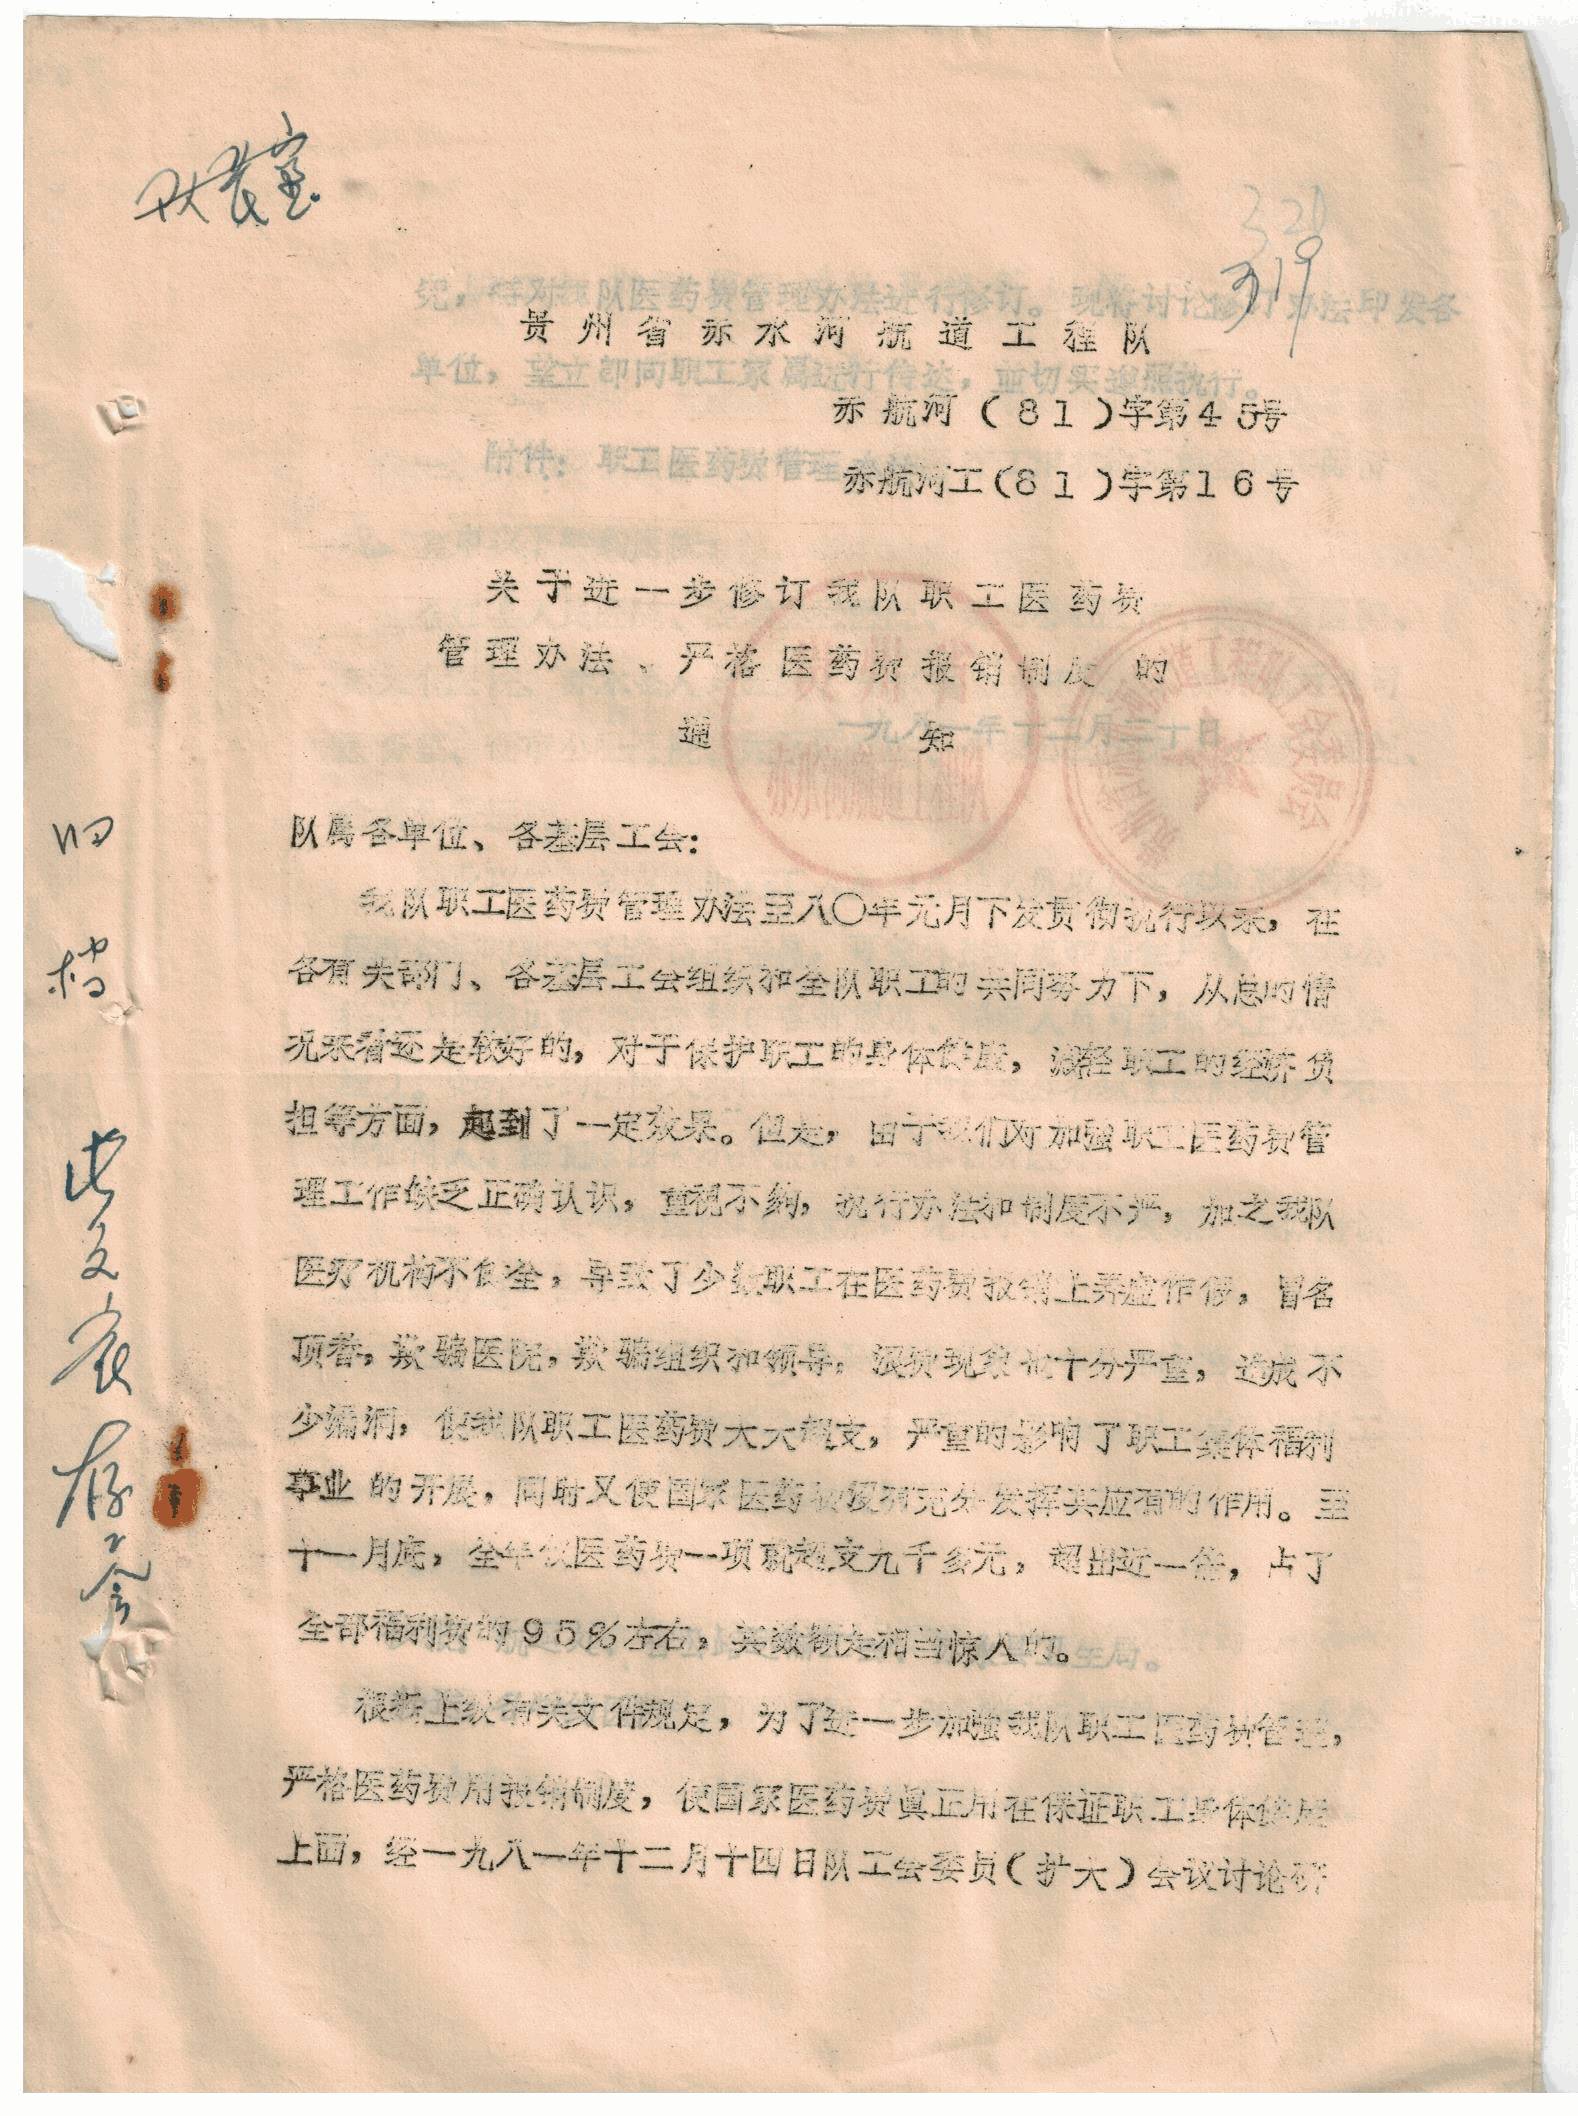 319
贵州省赤水河航道工程队
赤航河(81)字第45号
赤航河工(81)字第16号
关于进一步修订我队职工医药费
管理办法、严格医药费报销制度的
通知
队属各单位、各基层工会:
我队职工医药费管理办法至八〇年元月下发贯彻执行以来,在
各有关部门、各基层工会组织和全队职工的共同努力下,从总的情
况来看还是较好的,对于保护职工的身体健康,减轻职工的经济负
担等方面,起到了一定效果。但是,由于我们对加强职工医药费管
理工作缺乏正确认识,重视不够,执行办法和制度不严,加之我队
医疗机构不健全,导致了少数职工在医药费报销上弄虚作假,冒名
顶替,欺骗医院,欺骗组织和领导,浪费现象也十分严重,造成不
少漏洞,使我队职工医药费大大超支,严重的影响了职工集体福利
事业的开展,同时又使国家医药费没有充分发挥其应有的作用。至
十一月底,全年仅医药费一项就超支九千多元,超出近一倍,占了
全部福利费的95%左右,其数额是相当惊人的。
根据上级有关文件规定,为了进一步加强我队职工医药费管理,
严格医药费用报销制度,使国家医药费真正用在保证职工身体健康
上面,经一九八一年十二月十四日队工会委员(扩大)会议讨论研
归档